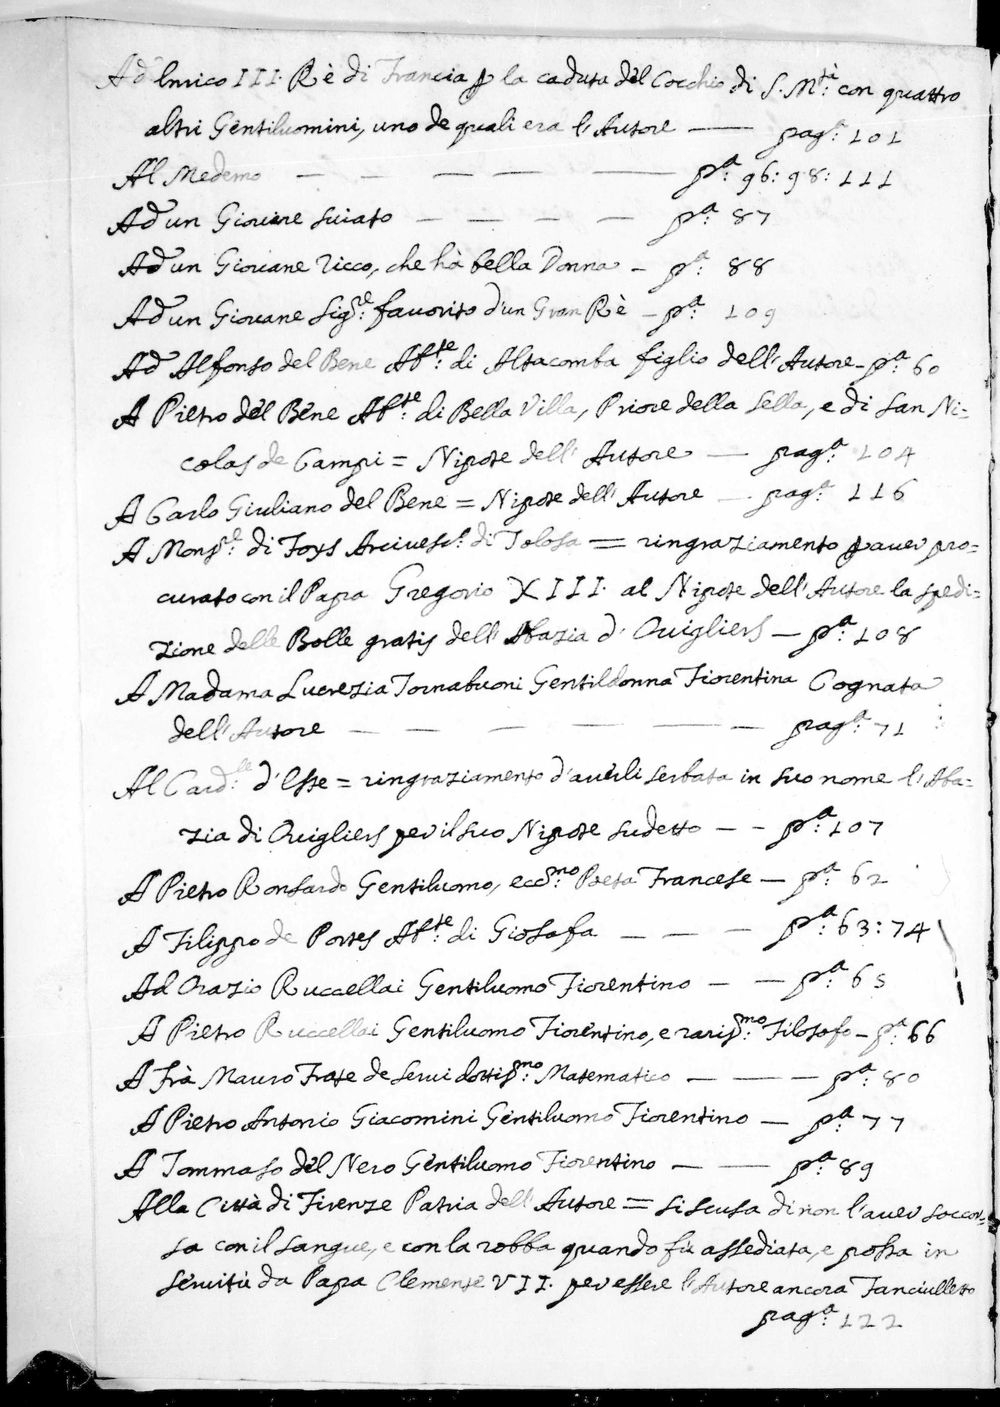 Ad Enrico III. Rè di Francia p la caduta del Cocchio di S. M.tà con quattro
altri Gentiluomini, uno de quali era l'Autore — pag.a 101
Al Medemo — — — — — — p.a: 96: 98: 111
Ad un Giovane suiato — — — — p.a: 87
Ad un Giovane ricco, che hà bella Donna — p.a: 88
Ad un Giovane Sig.re favorito d'un Gran Rè — p.a: 109
Ad Alfonso del Bene Ab.te di Altacomba figlio dell'Autore — p.a 60
A Pietro del Bene Ab.te di Bella Villa, Priore della Sella, e di San Ni=
colas de Campi = Nipote dell'Autore — pag.a 104
A Carlo Giuliano del Bene = Nipote dell'Autore — pag.a 116
A Mons.re di Foys Arcivesc.o di Tolosa = ringraziamento p aver pro=
curato con il Papa Gregorio XIII. al Nipote dell'Autore la spedi=
zione delle Bolle gratis dell'Abazia d'Ovigliers — p.a 108
A Madama Lucrezia Tornabuoni Gentildonna Fiorentina Cognata
dell'Autore — — — — — — pag.a 71
Al Card.le d'Esse = ringraziamento d'averli serbata in suo nome l'Aba=
zia di Ovigliers per il suo Nipote sudetto — — p.a: 107
A Pietro Ronsardo Gentiluomo, ecc.mo Poeta Francese — p.a: 62
A Filippo de Portes Ab.te di Giosafa — — — p.a: 63: 74
Ad Orazio Ruccellai Gentiluomo Fiorentino — — p.a: 65
A Pietro Ruccellai Gentiluomo Fiorentino, e raris.mo Filosofo — p.a: 66
A frà Mauro Frate de Servi dottis.mo Matematico — — — p.a: 80
A Pietro Antonio Giacomini Gentiluomo Fiorentino — p.a: 77
A Tommaso del Nero Gentiluomo Fiorentino — — p.a: 89
Alla Città di Firenze Patria dell'Autore = si scusa di non l'aver soccor=
sa con il sangue, e con la robba quando fù assediata, e posta in
servitù da Papa Clemente VII. per essere l'Autore ancora Fanciulletto
pag.a: 122